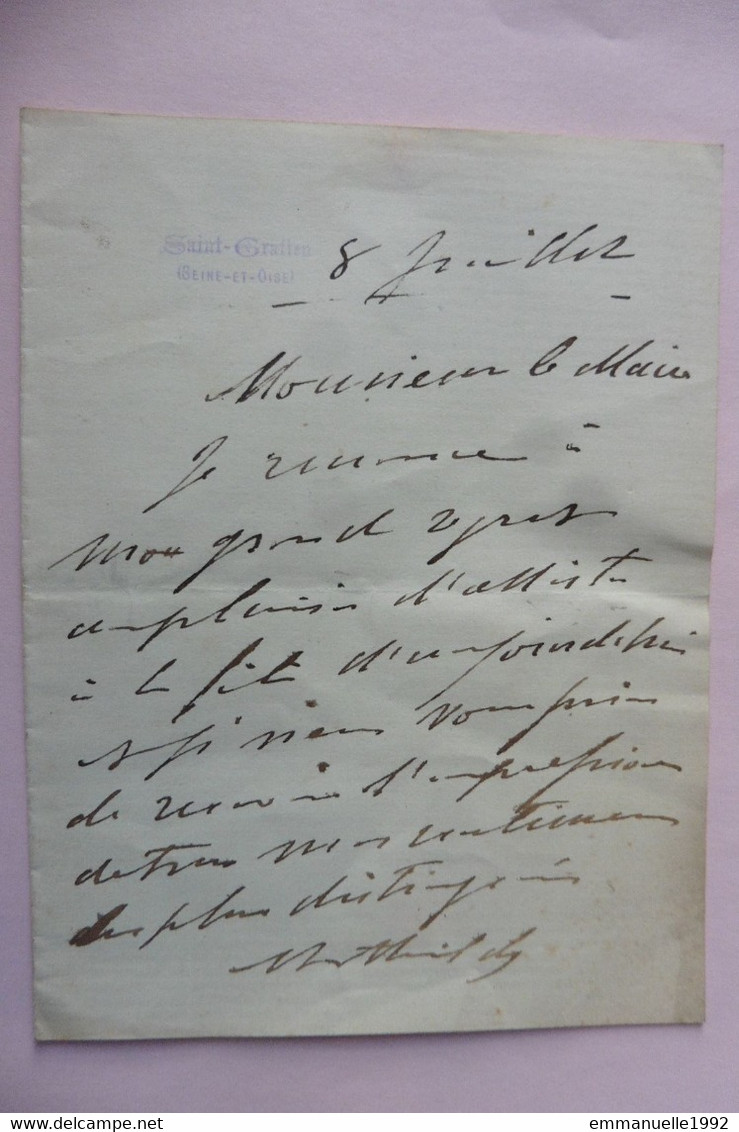 Saint-Gratien
(SEINE-ET-OISE)
8 Juillet
Monsieur le Maire
Je renonce à
mon grand regret
au plaisir d'assister
à la fête d'aujourd'hui
et je viens vous prier
de recevoir l'expression
de tous mes sentiments
les plus distingués
Mathilde
emmanuelle1992